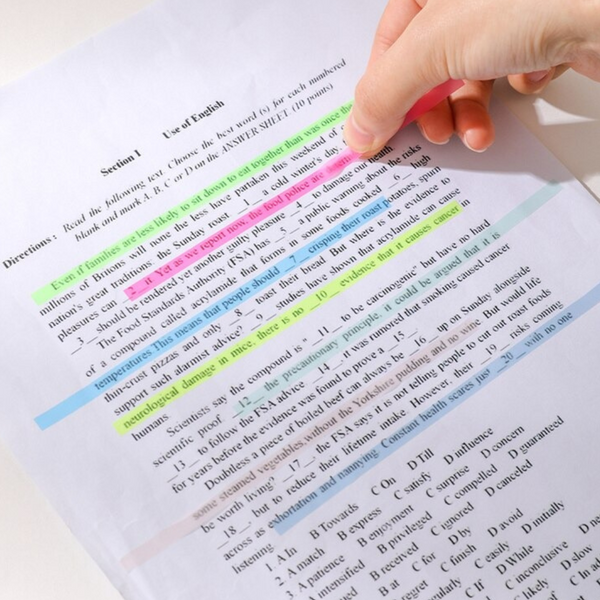 Section I Use of English
Directions: Read the following text. Choose the best word (s) for each numbered
blank and mark A, B, C or D on the ANSWER SHEET. (10 points)
Even if families are less likely to sit down to eat together than was once the
millions of Britons will none the less have partaken this weekend of
nation's great traditions: the Sunday roast. __1__ a cold winter's day,
pleasures can __2__ it. Yet as we report now, the food police are
__3__ should be rendered yet another guilty pleasure __4__ to damage our health
The Food Standards Authority (FSA) has __5__ a public warning about the risks
of a compound called acrylamide that forms in some foods cooked __6__ high
temperatures This means that people should __7__ crisping their roast potatoes, spurn
thin-crust pizzas and only __8__ toast their bread. But where is the evidence to
support such alarmist advice? __9__ studies have shown that acrylamide can cause
neurological damage in mice, there is no __10__ evidence that it causes cancer in
humans
Scientists say the compound is "__11__ to be carcinogenic" but have no hard
scientific proof. __12__ the precautionary principle, it could be argued that it is
__13__ to follow the FSA advice __14__, it was rumored that smoking caused cancer
for years before the evidence was found to prove a __15__.
Doubtless a piece of boiled beef can always be __16__ up on Sunday alongside
some steamed vegetables without the Yorkshire pudding and no wine But would life
be worth living? __17__, the FSA says it is not telling people to cut out roast foods
__18__, but to reduce their lifetime intake. However, their __19__ risks coming
across as exhortation and nannying Constant health scares just __20__ with no one
listening.
1. A In B Towards C On D Till
2. A match B express C satisfy D influence
3. A patience B enjoyment C surprise D concern
intensified B privileged C compelled D guaranteed
B received C ignored D canceled
B at C for D by D avoid
regret C finish D initially
C easily
C If D While
C inconclusive
likely D slow